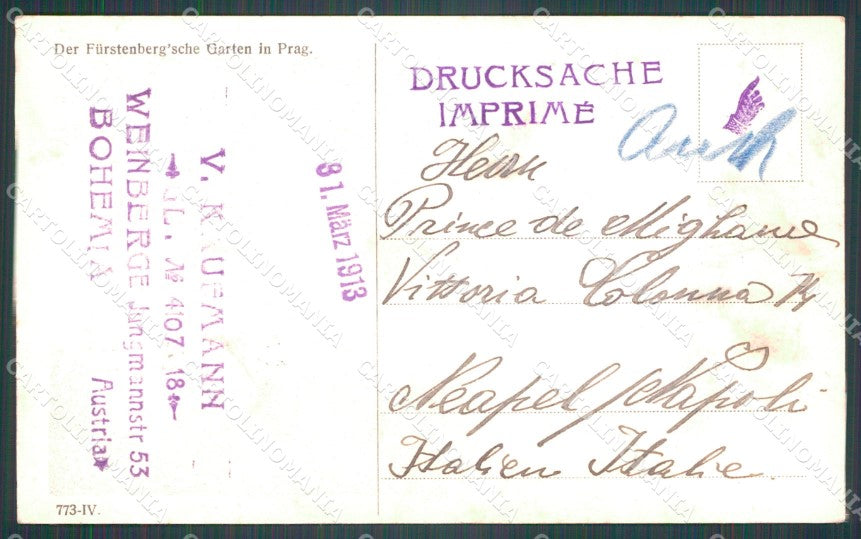 Der Fürstenberg'sche Garten in Prag.
V. KAUFMANN
GL. № 407.18
WEINBERGE Jungmannstr 53
BOHEMIA
Austria
31. März 1913
DRUCKSACHE
IMPRIMÉ
Herrn
Prince de Mighane
Vittoria Colonna
Neapel / Napoli
Italien Italie
773-IV.
CARTOLINOMANIA